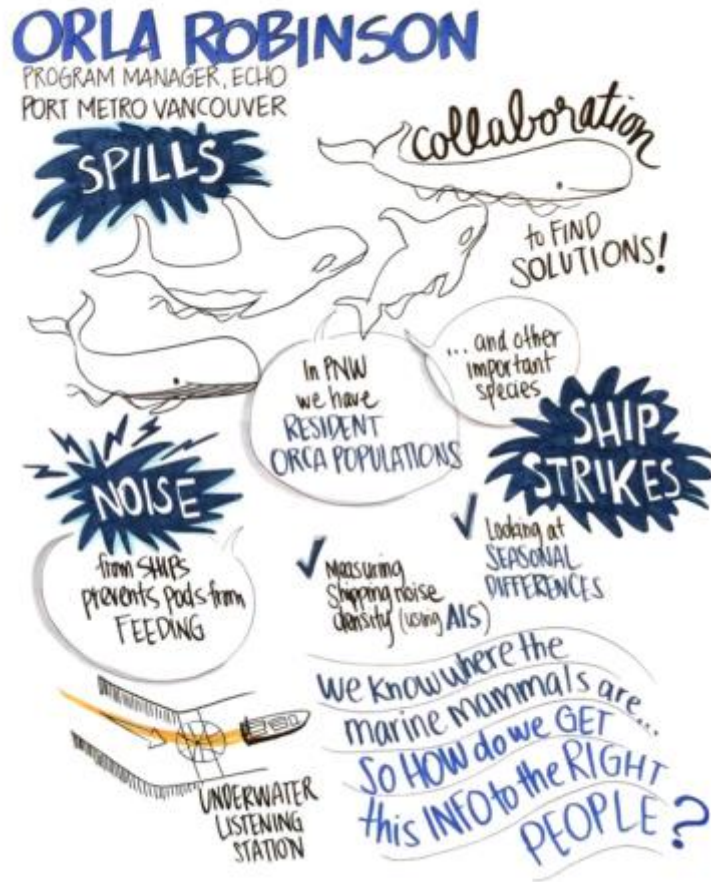 ORLA ROBINSON
PROGRAM MANAGER, ECHO
PORT METRO VANCOUVER
SPILLS
collaboration
to FIND
SOLUTIONS!
In PNW
we have
RESIDENT
ORCA POPULATIONS
... and other
important
species
SHIP
STRIKES
NOISE
from SHIPS
prevents pods from
FEEDING
Measuring
Shipping noise
density (using AIS)
Looking at
SEASONAL
DIFFERENCES
UNDERWATER
LISTENING
STATION
We know where the
marine mammals are...
So HOW do we GET
this INFO to the RIGHT
PEOPLE?